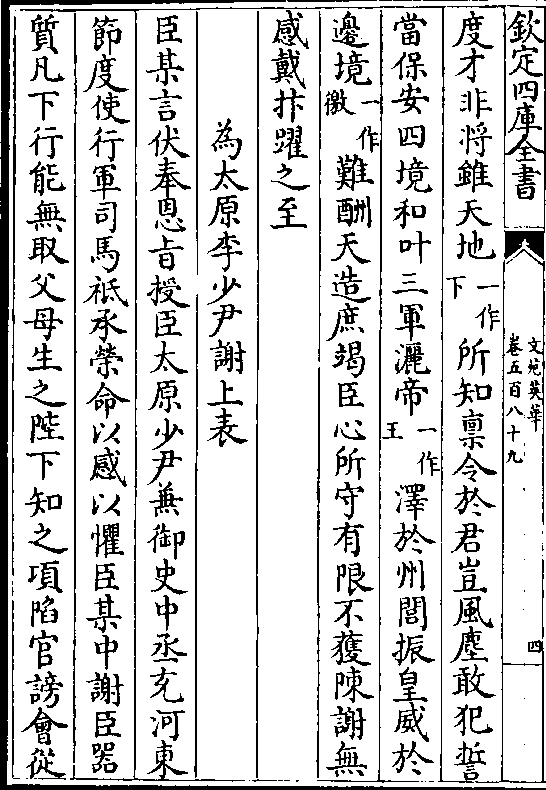 欽定四庫全書
文苑英華
卷五百八十九
四
度才非将雖天地一作下所知禀令於君豈風塵敢犯誓
當保安四境和叶三軍灑帝一作王澤於州閭振皇威於
邊境一作徼難酬天造庶竭臣心所守有限不獲陳謝無
感戴抃躍之至
為太原李少尹謝上表
臣某言伏奉恩旨授臣太原少尹兼御史中丞充河東
節度使行軍司馬祗承榮命以感以懼臣某中謝臣器
質凡下行能無取父母生之陛下知之項陷官謗會從